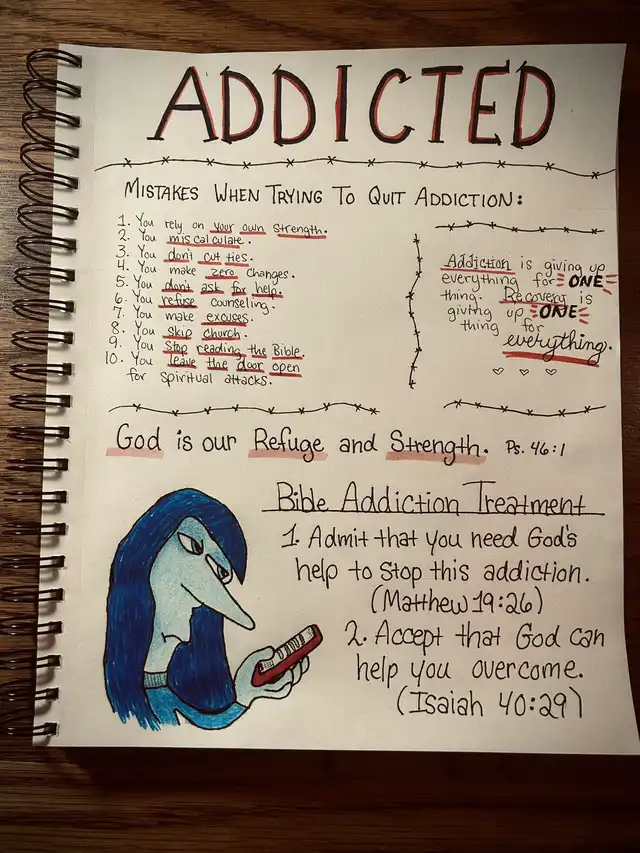 ADDICTED
MISTAKES WHEN TRYING TO QUIT ADDICTION:
1. You rely on your own strength.
2. You miscalculate.
3. You don't cut ties.
4. You make zero changes.
5. You don't ask for help.
6. You refuse counseling.
7. You make excuses.
8. You skip church.
9. You stop reading the Bible.
10. You leave the door open
for spiritual attacks.
Addiction is giving up
everything for ONE
thing. Recovery is
giving up ONE
thing for
everything.
God is our Refuge and Strength. Ps. 46:1
Bible Addiction Treatment
1. Admit that you need God's
help to stop this addiction.
(Matthew 19:26)
2. Accept that God can
help you overcome.
(Isaiah 40:29)